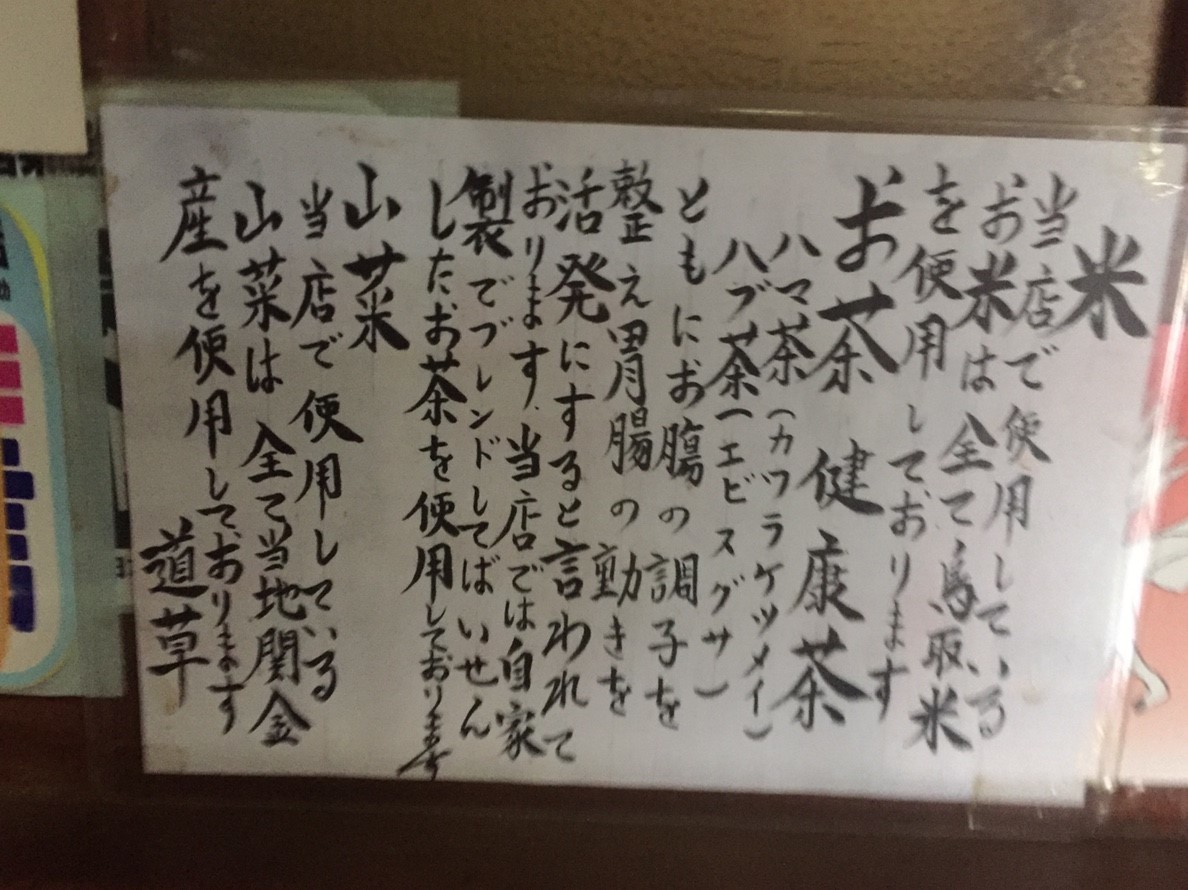 米
当店で使用している
お米は全て鳥取米
を使用しております
お茶 健康茶
ハマ茶(カワラケツメイ)
ハブ茶(エビスグサ)
ともにお腹の調子を
整え胃腸の動きを
活発にすると言われて
おります.当店では自家
製でブレンドしてばいせん
したお茶を使用しております
山菜
当店で使用している
山菜は全て当地関金
産を使用しております
道草